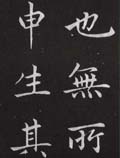 也無所
申生其